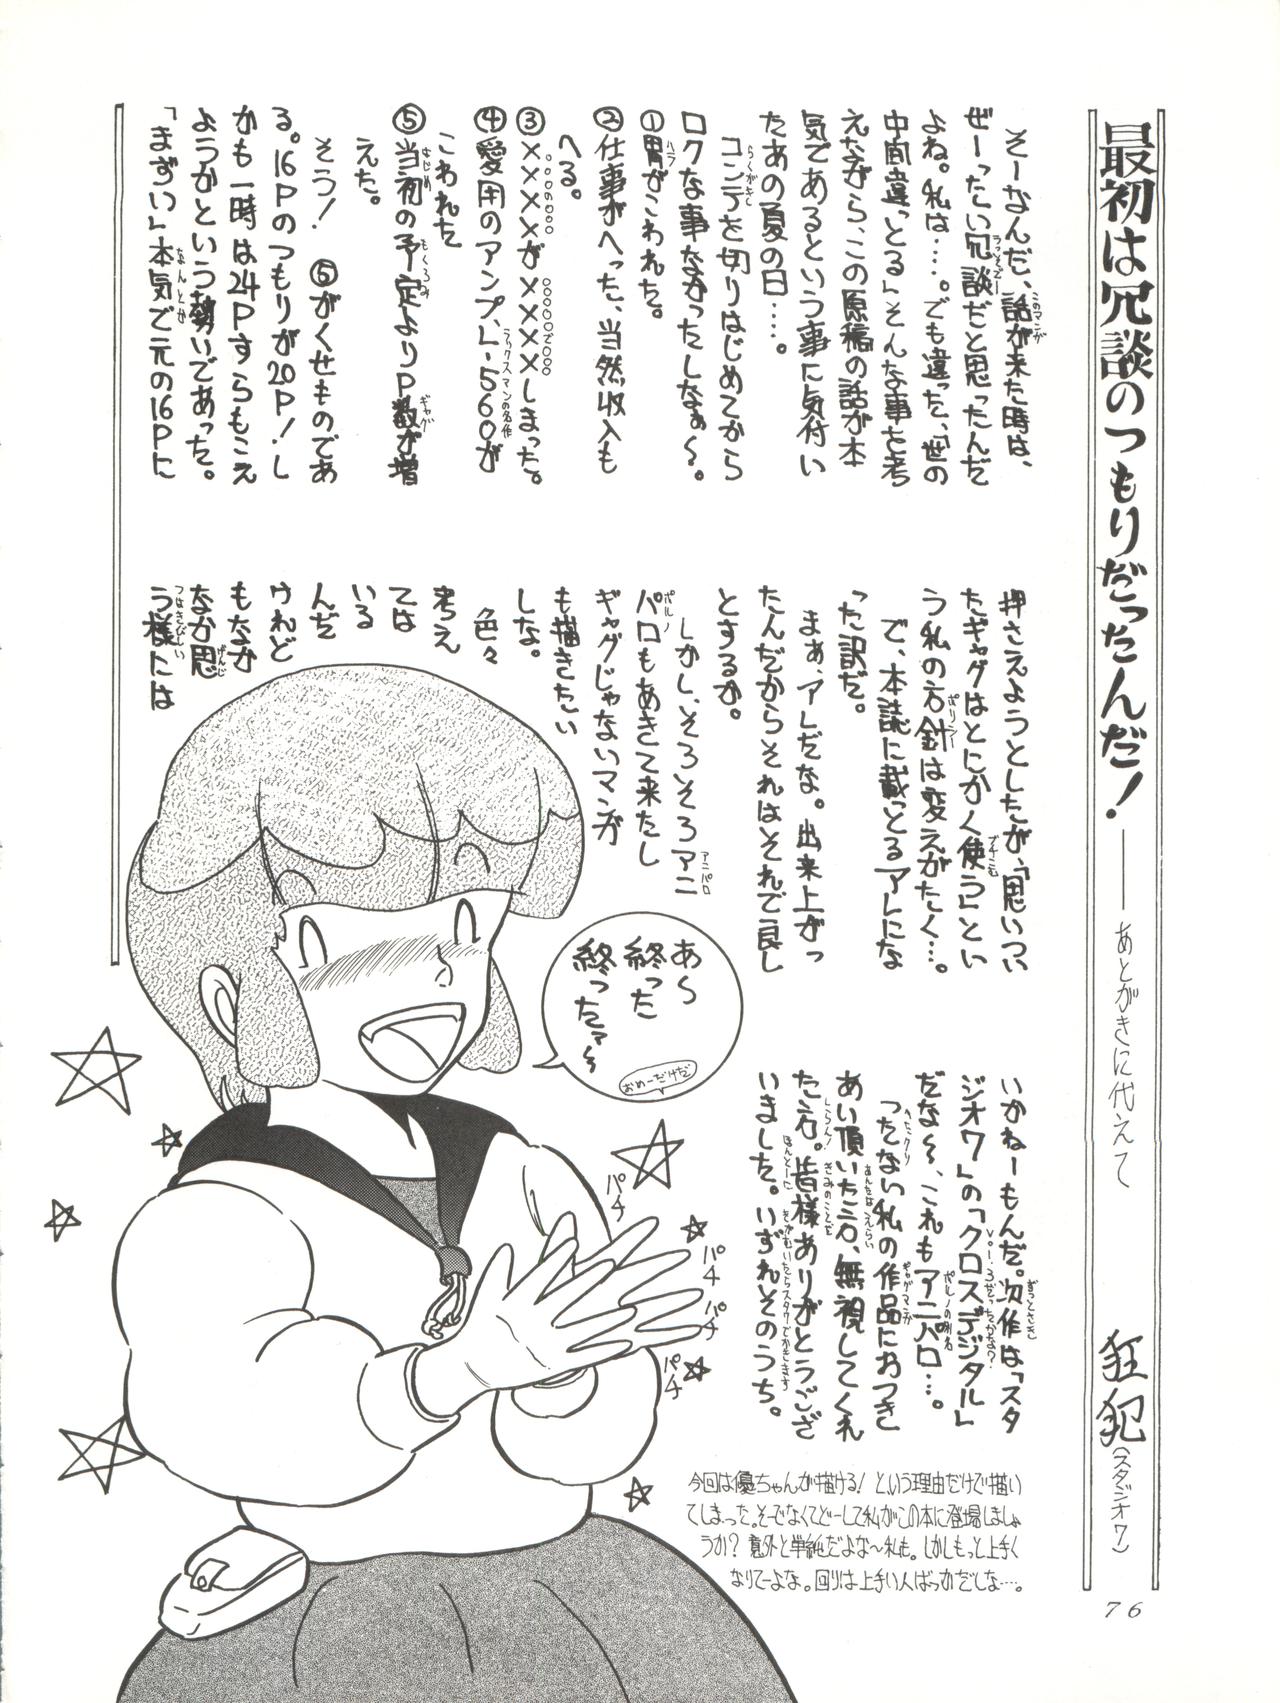 最初は冗談のつもりだったんだ！――あとがきに代えて
狂犯（スタジオ7）
そーなんだ、話が来た時は、
ぜーったい冗談だと思ったんだ
よね。私は…。でも違った、「世の
中間違っとる」そんな事を考
えながら、この原稿の話が本
気であるという事に気付い
たあの夏の日…。
コンテを切りはじめてから
ロクな事なかったしなぁ〜。
①胃がこわれた。
②仕事がへった、当然収入も
へる。
③××××が××××しまった。
④愛用のアンプ、L-560が
こわれた
⑤当初の予定よりP数が増
えた。
そう！⑤がくせものであ
る。16Pのつもりが20P！し
かも一時は24Pすらもこえ
ようかという勢いであった。
「まずい」本気で元の16Pに
押さえようとしたが、「思いつい
たギャグはとにかく使う」とい
う私の方針は変えがたく…。
で、本誌に載っとるアレにな
った訳だ。
まぁ、アレだな。出来上がっ
たんだからそれはそれで良し
とするか。
しかし、そろそろアニ
パロもあきて来たし
ギャグじゃないマンガ
も描きたい
しな。
色々
考え
ては
いる
んだ
けれど
もなか
なか思
う様には
いかねーもんだ。次作は「スタ
ジオ7」の「クロスデジタル」
だな〜、これもアニパロ…。
つたない私の作品におつき
あい頂いた方、無視してくれ
た方。皆様ありがとうござ
いました。いずれそのうち。
あ〜
終った
終ったァ〜
おめーだけだ
パチ
パチ
パチ
パチ
今回は優ちゃんが描ける！という理由だけで描い
てしまった。そーでなくてどーして私がこの本に登場しましょ
うか？意外と単純だよな〜私も。しかしもっと上手く
なりてーよな。回りは上手い人ばっかだしな…。
76